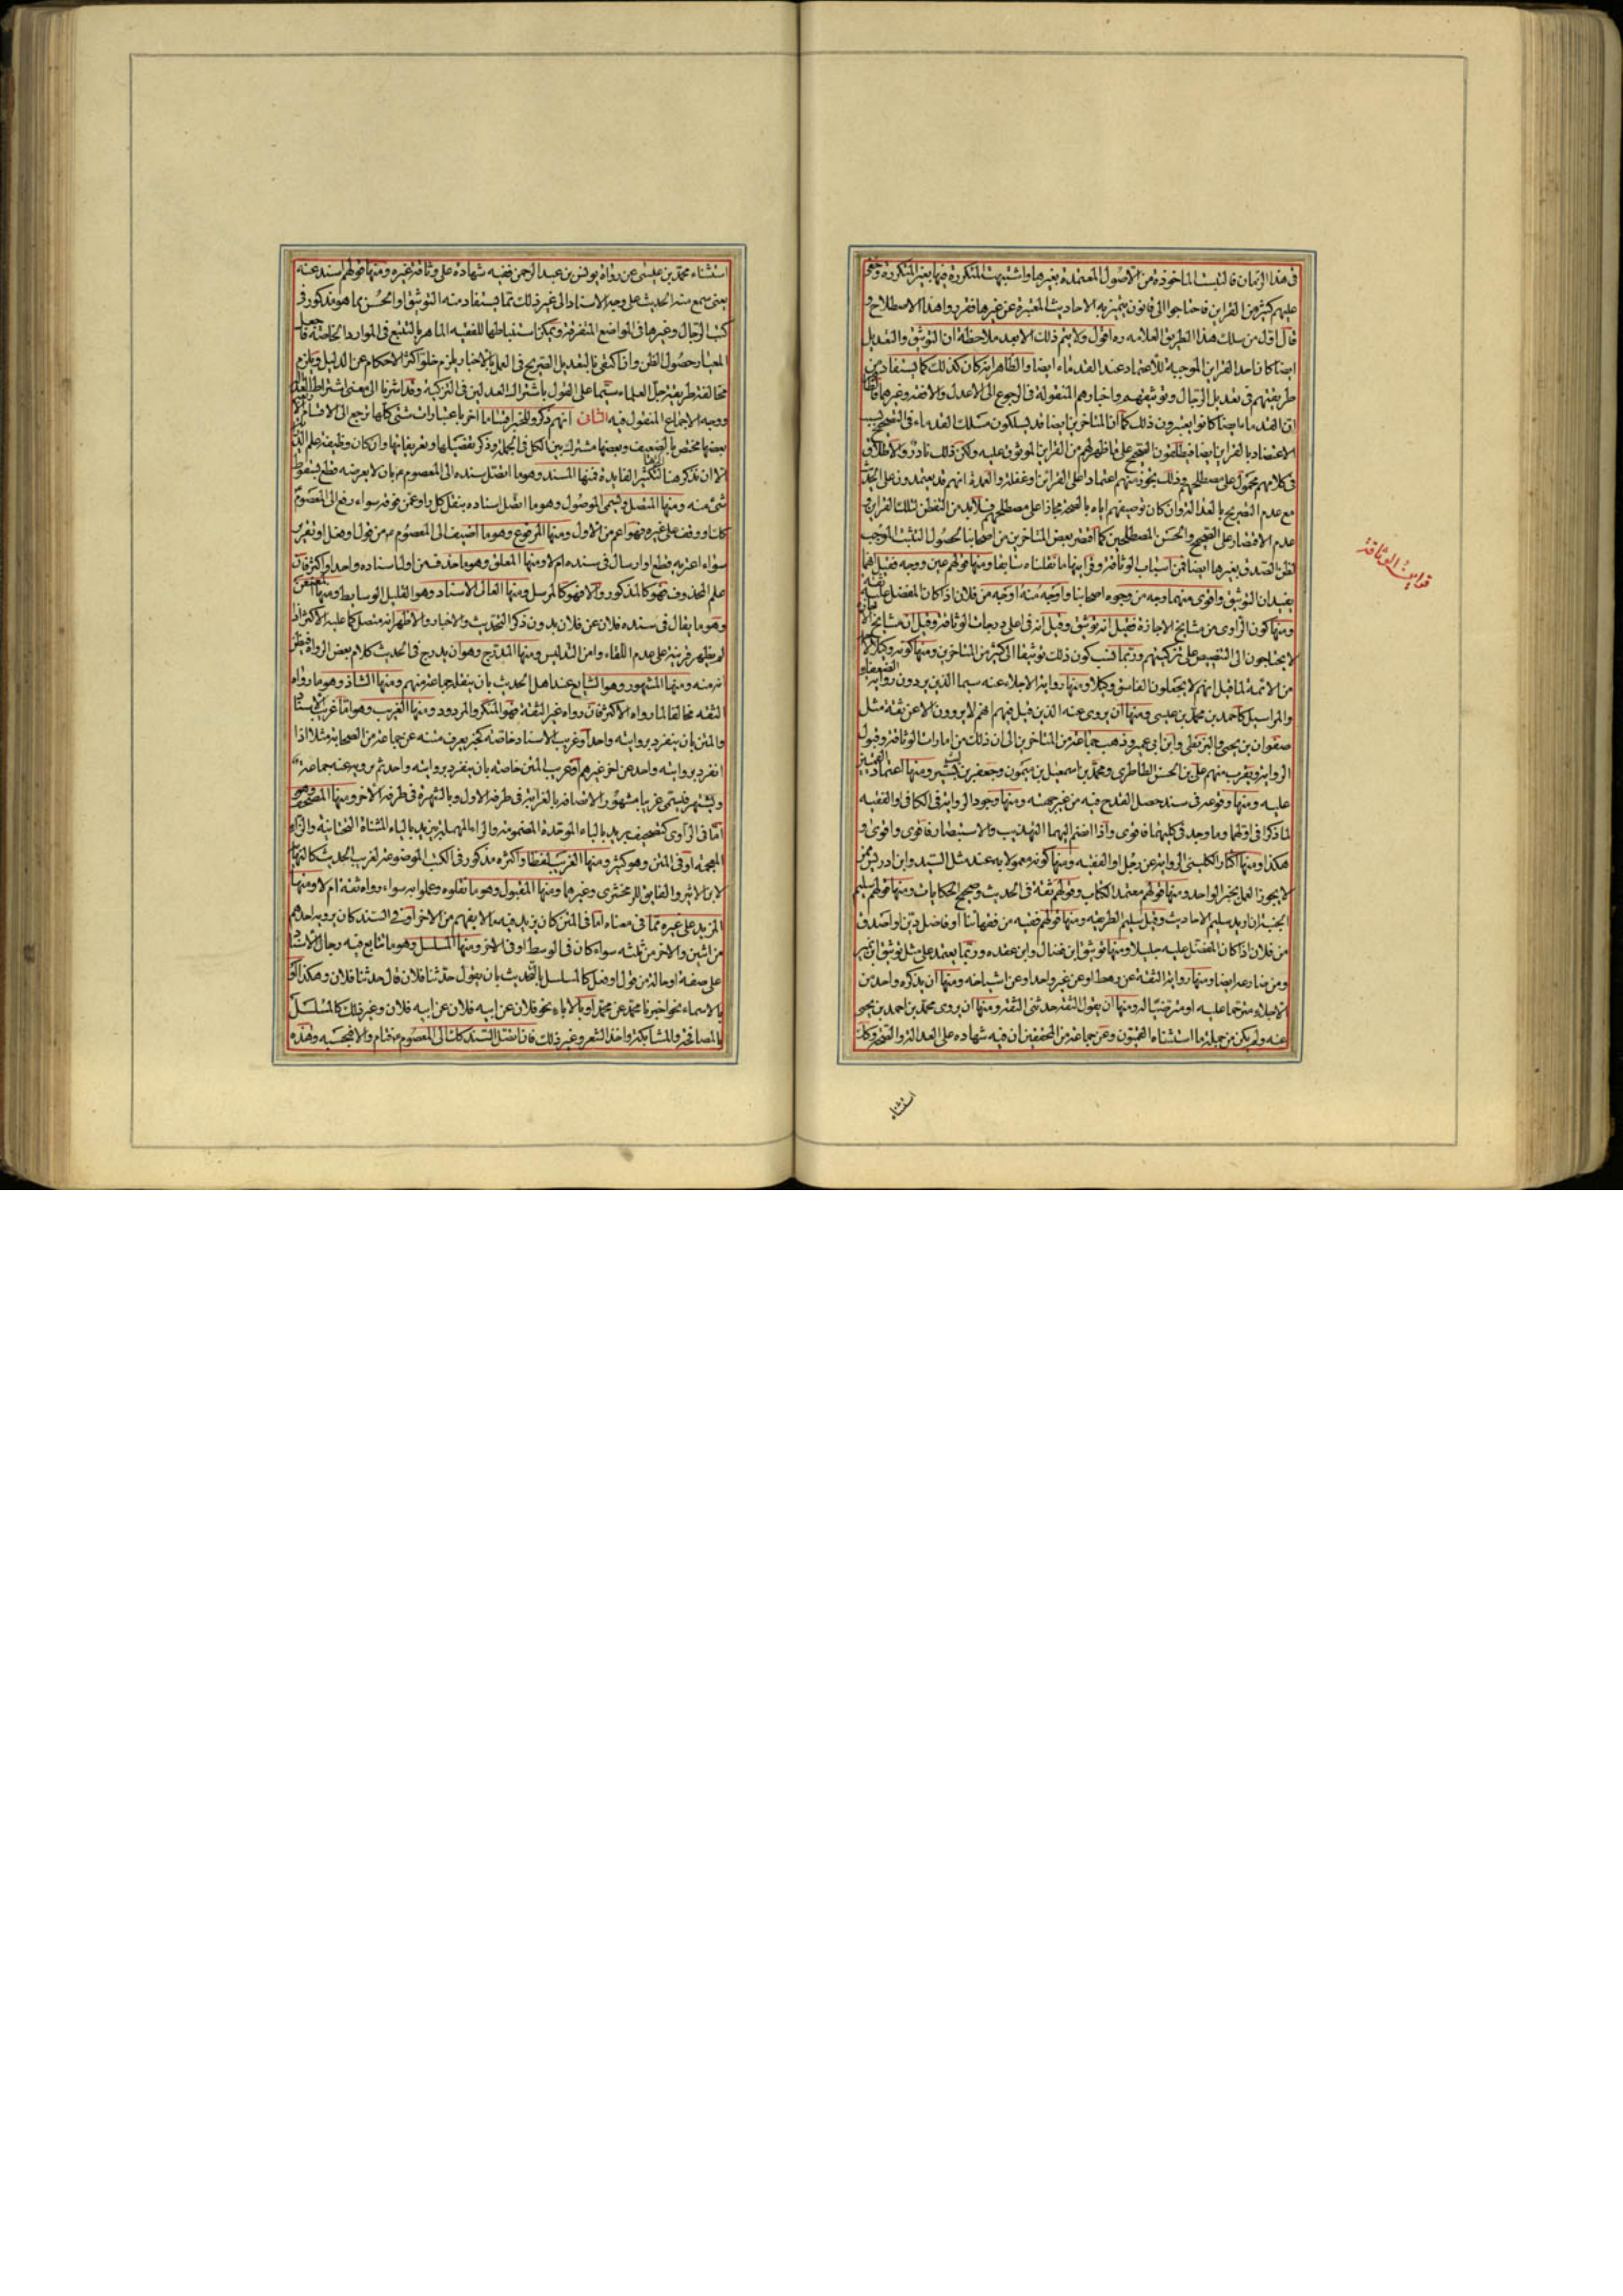 في هذا الزمان فالتبست الماخوذة من الاصول المعتمدة بغيرها واشتبهت المتكررة فيها بغير المتكررة وخفي
عليهم كثير من القراين فاحتاجوا الى قانون يتميز به الاحاديث المعتبرة عن غيرها فقرروا هذا الاصطلاح و
قال اول من سلك هذا الطريق العلامه ره اقول ولا يتم ذلك الا بعد ملاحظة ان التوثيق والتعديل
ايضا كانا احد القراين الموجبة للاعتماد عند القدماء ايضا والظاهر انه كان كذلك كما يستفاد من
طريقتهم في تعديل الرجال وتوثيقهم واخبارهم المنقولة في الرجوع الى الاعدل والافقه وغيرهما
ان القدماء ايضا كانوا يعتبرون ذلك كما ان المتاخرين ايضا قد يسلكون مسلك القدماء في التصحيح بسبب
الاعتضاد بالقراين ايضا فيطلقون الصحيح على ما ظهر لهم من القراين الوثوق عليه ولكن ذلك نادر والاطلاق
في كلامهم محمول على مصطلحهم وذلك يجوز منهم اعتمادا على القراين او غفلة والعمدة انهم قد يعتمدون على الحديث
مع عدم التصريح بالعدالة وان كان توصيفهم اياه بالصحة مجازا على مصطلحهم فلابد من التفطن لتلك القراين و
عدم الاقتصار على الصحيح والحسن المصطلحين كما اقتصر بعض المتاخرين من اصحابنا لحصول التثبت الموجب
لظن الصدق بغيرها ايضا فمن اسباب الوثاقة وقراينها ما نقلناه سابقا ومنها قولهم عين ووجه فقيل انهما
يفيدان التوثيق واقوى منهما وجه من وجوه اصحابنا واوجه منه اوجه من فلان اذا كان المفضل عليه ثقة
ومنها كون الراوي من مشايخ الاجازة فقيل انه توثيق وقيل انه في اعلى درجات الوثاقة وقيل ان مشايخ الاجازة
لا يحتاجون الى التنصيص على تزكيتهم وربما نسب كون ذلك توثيقا الى كثير من المتاخرين ومنها كونه وكيلا لاحد
من الائمة لما قيل انهم لا يجعلون الفاسق وكيلا ومنها رواية الاجلاء عنه سيما الذين يردون رواية الضعفاء
والمراسيل كاحمد بن محمد بن عيسى ومنها ان يروي عنه الذين قيل فيهم انهم لا يروون الا عن ثقة مثل
صفوان بن يحيى والبزنطي وابن ابي عمير وذهب جماعة من المتاخرين الى ان ذلك من امارات الوثاقة وقبول
الرواية ويقرب منهم علي بن الحسن الطاطري ومحمد بن اسمعيل بن ميمون وجعفر بن بشير ومنها اعتماد القميين
عليه ومنها وقوعه في سند حصل القدح فيه من غير جهته ومنها وجود الرواية في الكافي او الفقيه
لما ذكرا في اولهما وما وجد في كليهما فاقوى واذا انضم اليهما التهذيب والاستبصار فاقوى واقوى و
هكذا ومنها اكثار الكليني الرواية عن رجل او الفقيه ومنها كونه معمولا به عند مثل السيد وابن ادريس ممن
لا يجوز العمل بخبر الواحد ومنها قولهم معتمد الكتاب وقولهم ثقة في الحديث وصحيح الحكايات ومنها قولهم سليم
الجنبة ان اريد سليم الاحاديث وقيل سليم الطريقه ومنها قولهم فقيه من فقهائنا او فاضل دين او اصدق
من فلان اذا كان المفضل عليه جليلا ومنها توثيق ابن فضال وابن عقده وربما يعتمد على مثل توثيق ابن نمير
ومن ضارعه ايضا ومنها رواية الثقة عن رهط او عن غير واحد او عن اشياخه ومنها ان يذكره واحد من
الاجلاء مترحما عليه او مترضيا له ومنها ان يقول الثقة حدثني الثقة ومنها ان يروي محمد بن احمد بن يحيى
عنه ولم يكن من جملة ما استثناه القميون وعن جماعة من المحققين ان فيه شهادة على العدالة والصحة وكذلك
قراين الوثاقة
استثناء
استثناء محمد بن عيسى عن رواة يونس بن عبد الرحمن ففيه شهادة على وثاقة غيره ومنها قولهم اسند عنه
يعني سمع منه الحديث على وجه الاسناد الى غير ذلك مما يستفاد منه التوثيق او الحسن مما هو مذكور في
كتب الرجال وغيرها في المواضع المتفرقة ويمكن استنباطها للفقيه الماهر بالتتبع في الموارد الخاصة فاجعل
المعيار حصول الظن وان اكتفي بالتعديل الصريح في العمل بالاخبار يلزم خلو اكثر الاحكام عن الدليل ويلزم
مخالفة طريقة جل العلماء سيما على القول باشتراك العدلين في التزكية وقد اشرنا الى معنى اشتراط العدالة
ووجه الاجماع المنقول فيه الثاني انهم ذكروا للخبر اقساما اخر باعتبارات شتى كلها ترجع الى الاقسام الاربعة
بعضها مختص بالضعيف وبعضها مشترك بين الكل في الجملة وذكر تفصيلها وتعريفاتها وان كان وظيفة علم الدراية
الا ان نذكر هنا اكثرها لتكثير الفايدة فمنها المسند وهو ما اتصل سنده الى المعصوم ع بان لا يعرضه قطع بسقوط
شئ منه ومنها المتصل ويسمى الموصول وهو ما اتصل اسناده بنقل كل راو عمن فوقه سواء رفع الى المعصوم
كذلك او وقف على غيره فهو اعم من الاول ومنها المرفوع وهو ما اضيف الى المعصوم ع من قول او فعل او تقرير
سواء اعتريه قطع او ارسال في سنده ام لا ومنها المعلق وهو ما حذف من اول اسناده واحد او اكثر فان
علم المحذوف فهو كالمذكور والا فهو كالمرسل ومنها العالي الاسناد وهو القليل الوسايط ومنها المعنعن
وهو ما يقال في سنده فلان عن فلان بدون ذكر التحديث والاخبار والاظهر انه متصل كما عليه الاكثر اذا
لم يظهر قرينة على عدم اللقاء وامن التدليس ومنها المدرج وهو ان يدرج في الحديث كلام بعض الرواة فيظن
انه منه ومنها المشهور وهو الشايع عند اهل الحديث بان ينقله جماعة منهم ومنها الشاذ وهو ما رواه
الثقه مخالفا لما رواه الاكثر فان رواه غير الثقة فهو المنكر والمردود ومنها الغريب وهو اما غريب الاسناد
والمتن بان ينفرد بروايته واحد او غريب الاسناد خاصة كخبر يعرف متنه عن جماعة من الصحابة مثلا اذا
انفرد بروايته واحد عن اخر غيرهم او غريب المتن خاصة بان ينفرد بروايته واحد ثم يرويه عنه جماعة
ويشتهر فيسمى غريبا مشهورا لاتصافه بالغرابة في طرفه الاول وبالشهرة في طرفه الاخر ومنها المصحف وهو
اما في الراوي كتصحيف بريد بالباء الموحدة المضمومة والراء المهملة بيزيد بالياء المثناة التحتانية والزاء
المعجمه او في المتن وهو كثير ومنها الغريب لفظا واكثره مذكور في الكتب الموضوعة لغريب الحديث كالنهاية
لابن الاثير والفايق للزمخشري وغيرها ومنها المقبول وهو ما نقلوه وعملوا به سواء رواه ثقة ام لا ومنها
المزيد على غيره مما في معناه اما في المتن كان يزيد فيه ما لا يفهم من الاخر او في السند كان يرويه احدهم
من اثنين والاخر من ثلثه سواء كان في الوسط او في الاخر ومنها المسلسل وهو ما تتابع فيه رجال الاسناد
على صفة او حالة من قول او فعل كالمسلسل بالتحديث بان يقول حدثنا فلان قال حدثنا فلان وهكذا او
بالاسماء نحو اخبرنا محمد عن محمد او بالاباء نحو فلان عن ابيه فلان عن ابيه فلان وغير ذلك كالمسلسل
بالمصافحة والمشابكة واخذ الشعر وغير ذلك فان اتصل السند كذلك الى المعصوم ع فتام والا فبحسبه وهذه